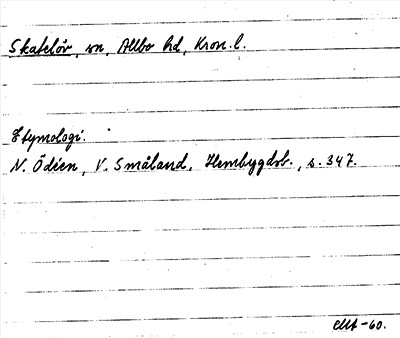 Skatelöv, sn, Allbo hd, Kron. l.
Etymologi.
N. Ödéen, V. Småland. Hembygdsb., s. 347.
-60.